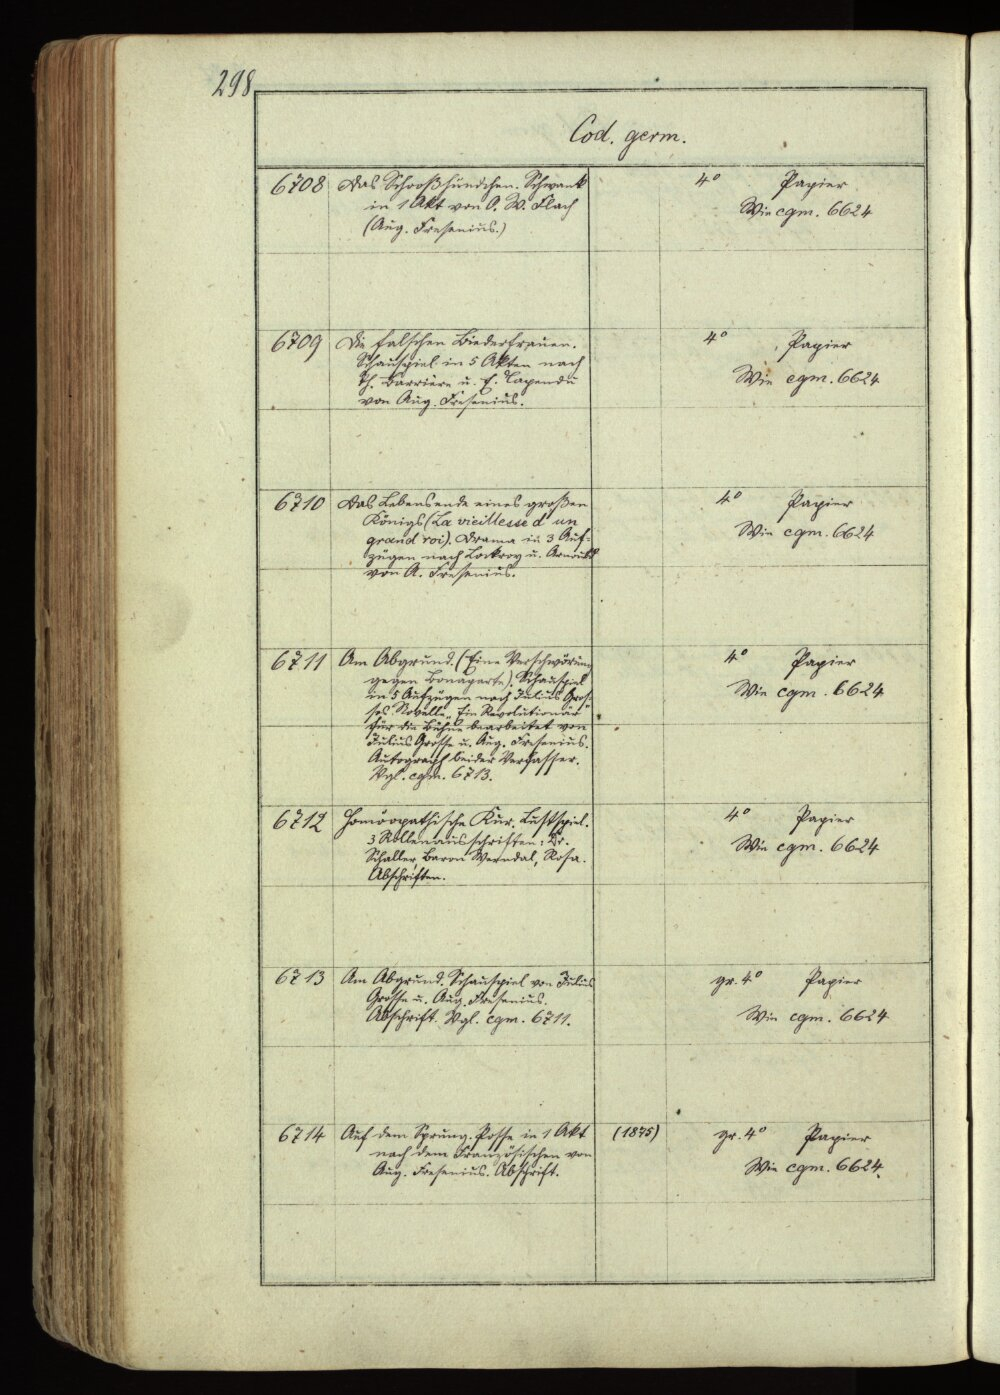 298
Cod. germ.
6708 Das Schooßhündchen. Schwank 4° Papier
in 1 Akt von O. W. Flach Wie cgm. 6624
(Aug. Fresenius.)
6709 Die falschen Biederfrauen. 4° Papier
Schauspiel in 5 Akten nach Wie cgm. 6624
Th. Barrière u. E. Capendu
von Aug. Fresenius.
6710 Das Lebensende eines großen 4° Papier
Königs (La vieillesse d'un Wie cgm. 6624
grand roi). Drama in 3 Auf-
zügen nach Lockroy u. Arnould
von A. Fresenius.
6711 Am Abgrund. (Eine Verschwörung 4° Papier
gegen Bonaparte). Schauspiel Wie cgm. 6624
in 5 Aufzügen nach Julius Gros-
ses Novelle „Ein Revolutionär"
für die Bühne bearbeitet von
Julius Grosse u. Aug. Fresenius.
Autograph beider Verfasser.
Vgl. cgm. 6713.
6712 Homöopathische Kur. Lustspiel. 4° Papier
3 Rollenausschriften: Dr. Wie cgm. 6624
Schaller, Baron Werndal, Rosa.
Abschriften.
6713 Am Abgrund. Schauspiel von Julius gr. 4° Papier
Grosse u. Aug. Fresenius. Wie cgm. 6624
Abschrift. Vgl. cgm. 6711.
6714 Auf dem Sprung. Posse in 1 Akt (1875) gr. 4° Papier
nach dem Französischen von Wie cgm. 6624.
Aug. Fresenius. Abschrift.